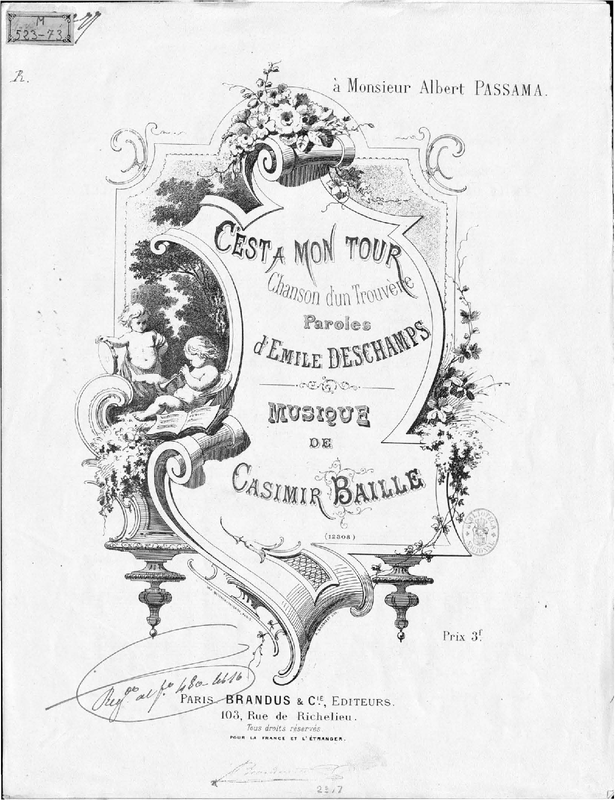 M
523-73
R.
à Monsieur Albert PASSAMA.
C'EST A MON TOUR
Chanson d'un Trouvère
Paroles
d'EMILE DESCHAMPS
MUSIQUE
DE
CASIMIR BAILLE
(12308)
Prix 3f.
PARIS, BRANDUS & CIE, EDITEURS.
103, Rue de Richelieu.
Tous droits réservés
POUR LA FRANCE ET L'ÉTRANGER.